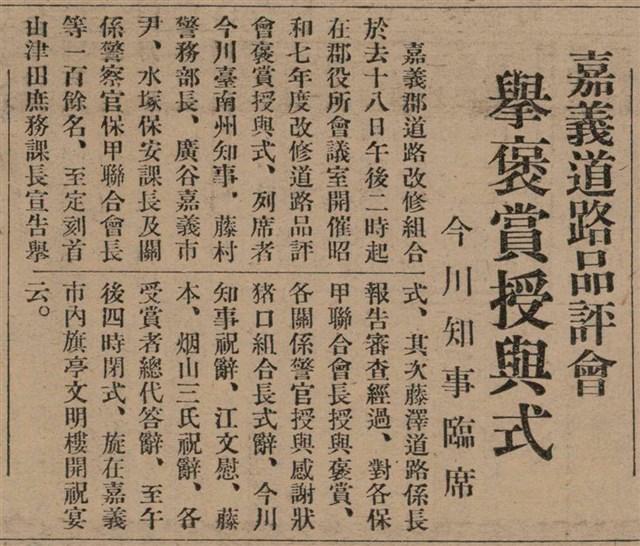 嘉義道路品評會
擧褒賞授與式
今川知事臨席
嘉義郡道路改修組合
於去十八日午後二時起
在郡役所會議室開催昭
和七年度改修道路品評
會褒賞授與式、列席者
今川臺南州知事、藤村
警務部長、廣谷嘉義市
尹、水塚保安課長及關
係警察官保甲聯合會長
等一百餘名、至定刻首
由津田庶務課長宣告擧
式、其次藤澤道路係長
報告審查經過、對各保
甲聯合會長授與褒賞、
各關係警官授與感謝狀
猪口組合長式辭、今川
知事祝辭、江文慰、藤
本、烟山三氏祝辭、各
受賞者總代答辭、至午
後四時閉式、旋在嘉義
市內旗亭文明樓開祝宴
云。